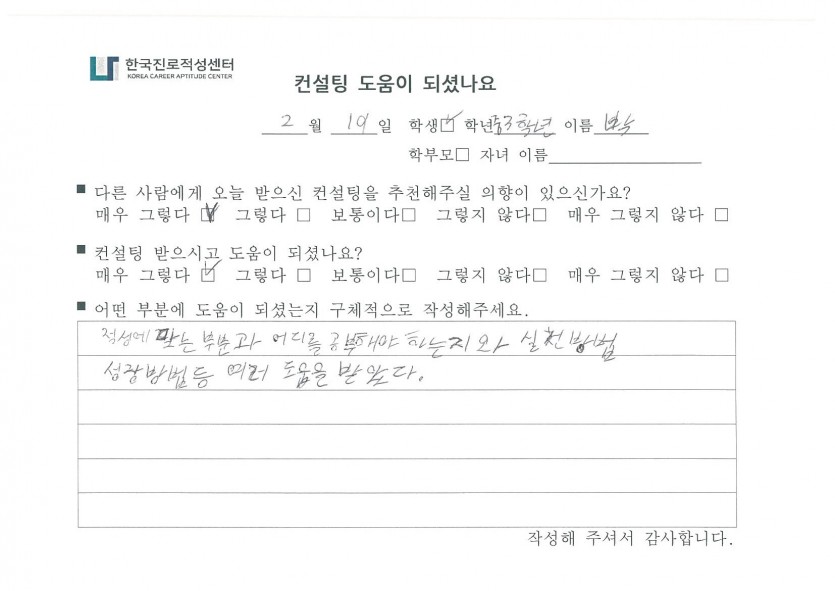 한국진로적성센터
KOREA CAREER APTITUDE CENTER
컨설팅 도움이 되셨나요
2 월 19 일 학생☑ 학년 중3학년 이름
학부모□ 자녀 이름
■ 다른 사람에게 오늘 받으신 컨설팅을 추천해주실 의향이 있으신가요?
매우 그렇다 ☑ 그렇다 □ 보통이다□ 그렇지 않다□ 매우 그렇지 않다 □
■ 컨설팅 받으시고 도움이 되셨나요?
매우 그렇다 ☑ 그렇다 □ 보통이다□ 그렇지 않다□ 매우 그렇지 않다 □
■ 어떤 부분에 도움이 되셨는지 구체적으로 작성해주세요.
적성에 맞는 부분과 어디를 공부해야 하는지와 실천방법
성장방법등 여러 도움을 받았다.
작성해 주셔서 감사합니다.